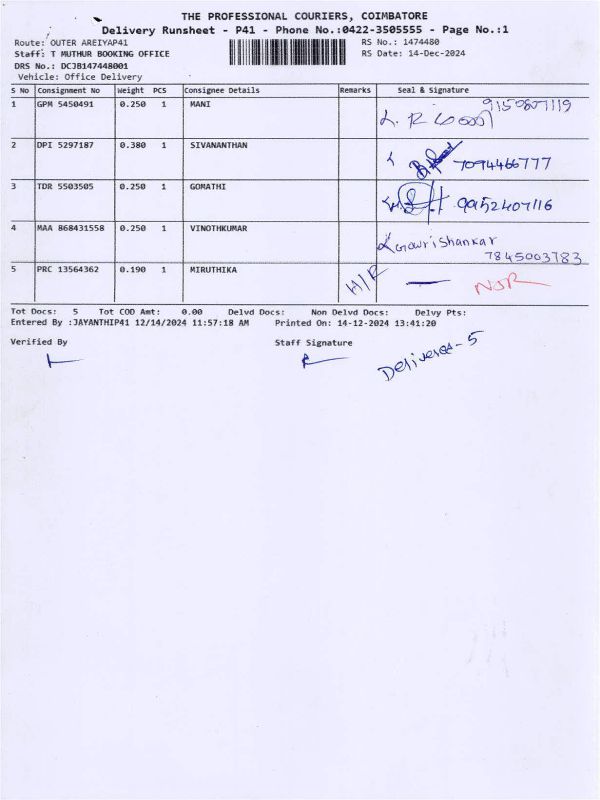 THE PROFESSIONAL COURIERS, COIMBATORE
Delivery Runsheet - P41 - Phone No.:0422-3505555 - Page No.:1
Route: OUTER AREIYAP41 RS No.: 1474480
Staff: T MUTHUR BOOKING OFFICE RS Date: 14-Dec-2024
DRS No.: DCJB147448001
Vehicle: Office Delivery
S No Consignment No Weight PCS Consignee Details Remarks Seal & Signature
1 GPM 5450491 0.250 1 MANI 9150807119
2 DPI 5297187 0.380 1 SIVANANTHAN 7094466777
3 TDR 5503505 0.250 1 GOMATHI 9952407116
4 MAA 868431558 0.250 1 VINOTHKUMAR Gowrishankar
7845003783
5 PRC 13564362 0.190 1 MIRUTHIKA H/R NSR
Tot Docs: 5 Tot COD Amt: 0.00 Delvd Docs: Non Delvd Docs: Delvy Pts:
Entered By :JAYANTHIP41 12/14/2024 11:57:18 AM Printed On: 14-12-2024 13:41:20
Verified By Staff Signature
Deliveres - 5